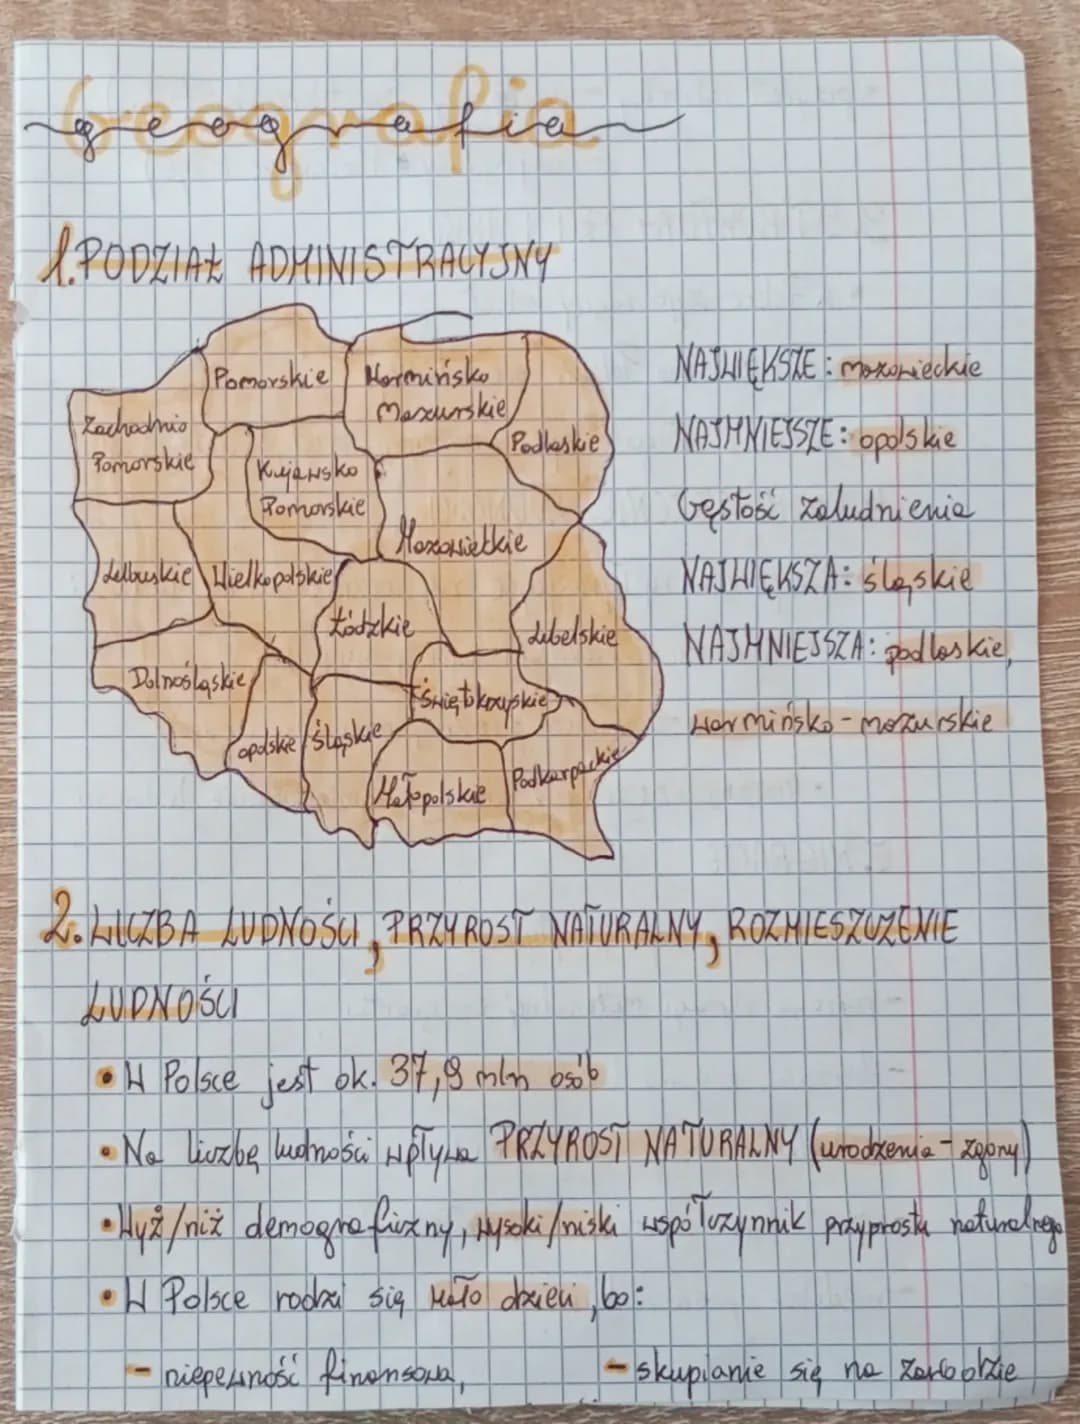 geografia
1. PODZIAŁ ADMINISTRACYJNY
Pomorskie
Warmińsko
Mazurskie
Zachodnio
Pomorskie
Podlaskie
Kujawsko
Pomorskie
Mazowieckie
Lubuskie
Wielkopolskie
Łódzkie
Lubelskie
Dolnośląskie
Świętokrzyskie
opolskie
Śląskie
Małopolskie
Podkarpackie
NAJWIĘKSZE: mazowieckie
NAJMNIEJSZE: opolskie
Gęstość zaludnienia
NAJWIĘKSZA: śląskie
NAJMNIEJSZA: podlaskie,
warmińsko-mazurskie
2. LICZBA LUDNOŚCI, PRZYROST NATURALNY, ROZMIESZCZENIE
LUDNOŚCI
• W Polsce jest ok. 37,9 mln osób
• Na liczbę ludności wpływa PRZYROST NATURALNY (urodzenia - zgony)
• Wyż/niż demograficzny, wysoki/niski współczynnik przyprostu naturalnego
• W Polsce rodzi się mało dzieci, bo:
- niepewność finansowa, - skupianie się na zarobdzie